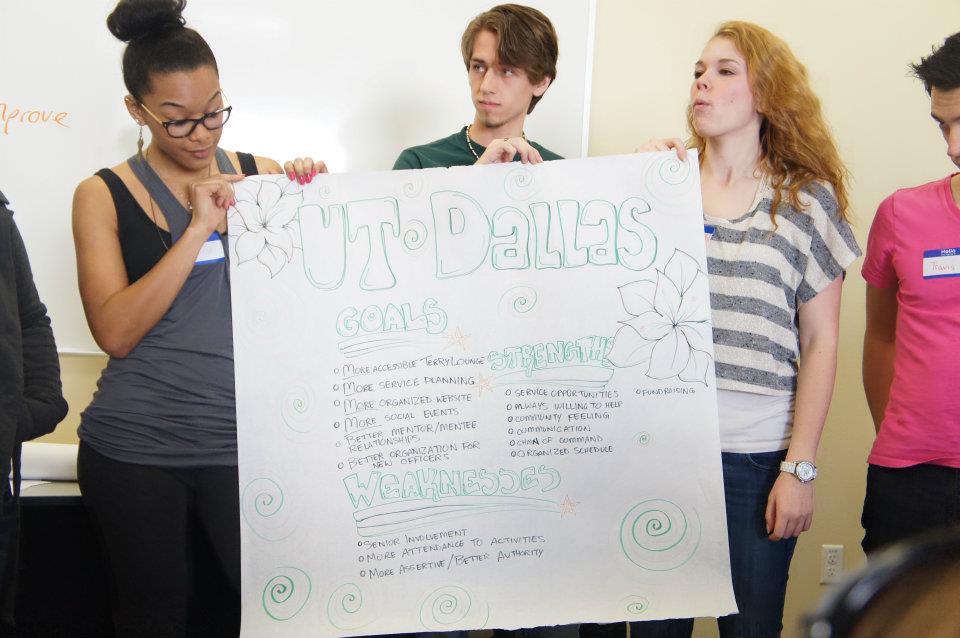 mprove
UT Dallas
GOALS
o MORE ACCESSIBLE TERRY LOUNGE
o MORE SERVICE PLANNING
o MORE ORGANIZED WEBSITE
o MORE SOCIAL EVENTS
o BETTER MENTOR/MENTEE
RELATIONSHIPS
o BETTER ORGANIZATION FOR
NEW OFFICERS
STRENGTHS
o SERVICE OPPORTUNITIES
o ALWAYS WILLING TO HELP
o COMMUNITY FEELING
o COMMUNICATION
o CHAIN OF COMMAND
o ORGANIZED SCHEDULE
o FUNDRAISING
WEAKNESSES
o SENIOR INVOLVEMENT
o MORE ATTENDANCE TO ACTIVITIES
o MORE ASSERTIVE/BETTER AUTHORITY
Hello
Travis